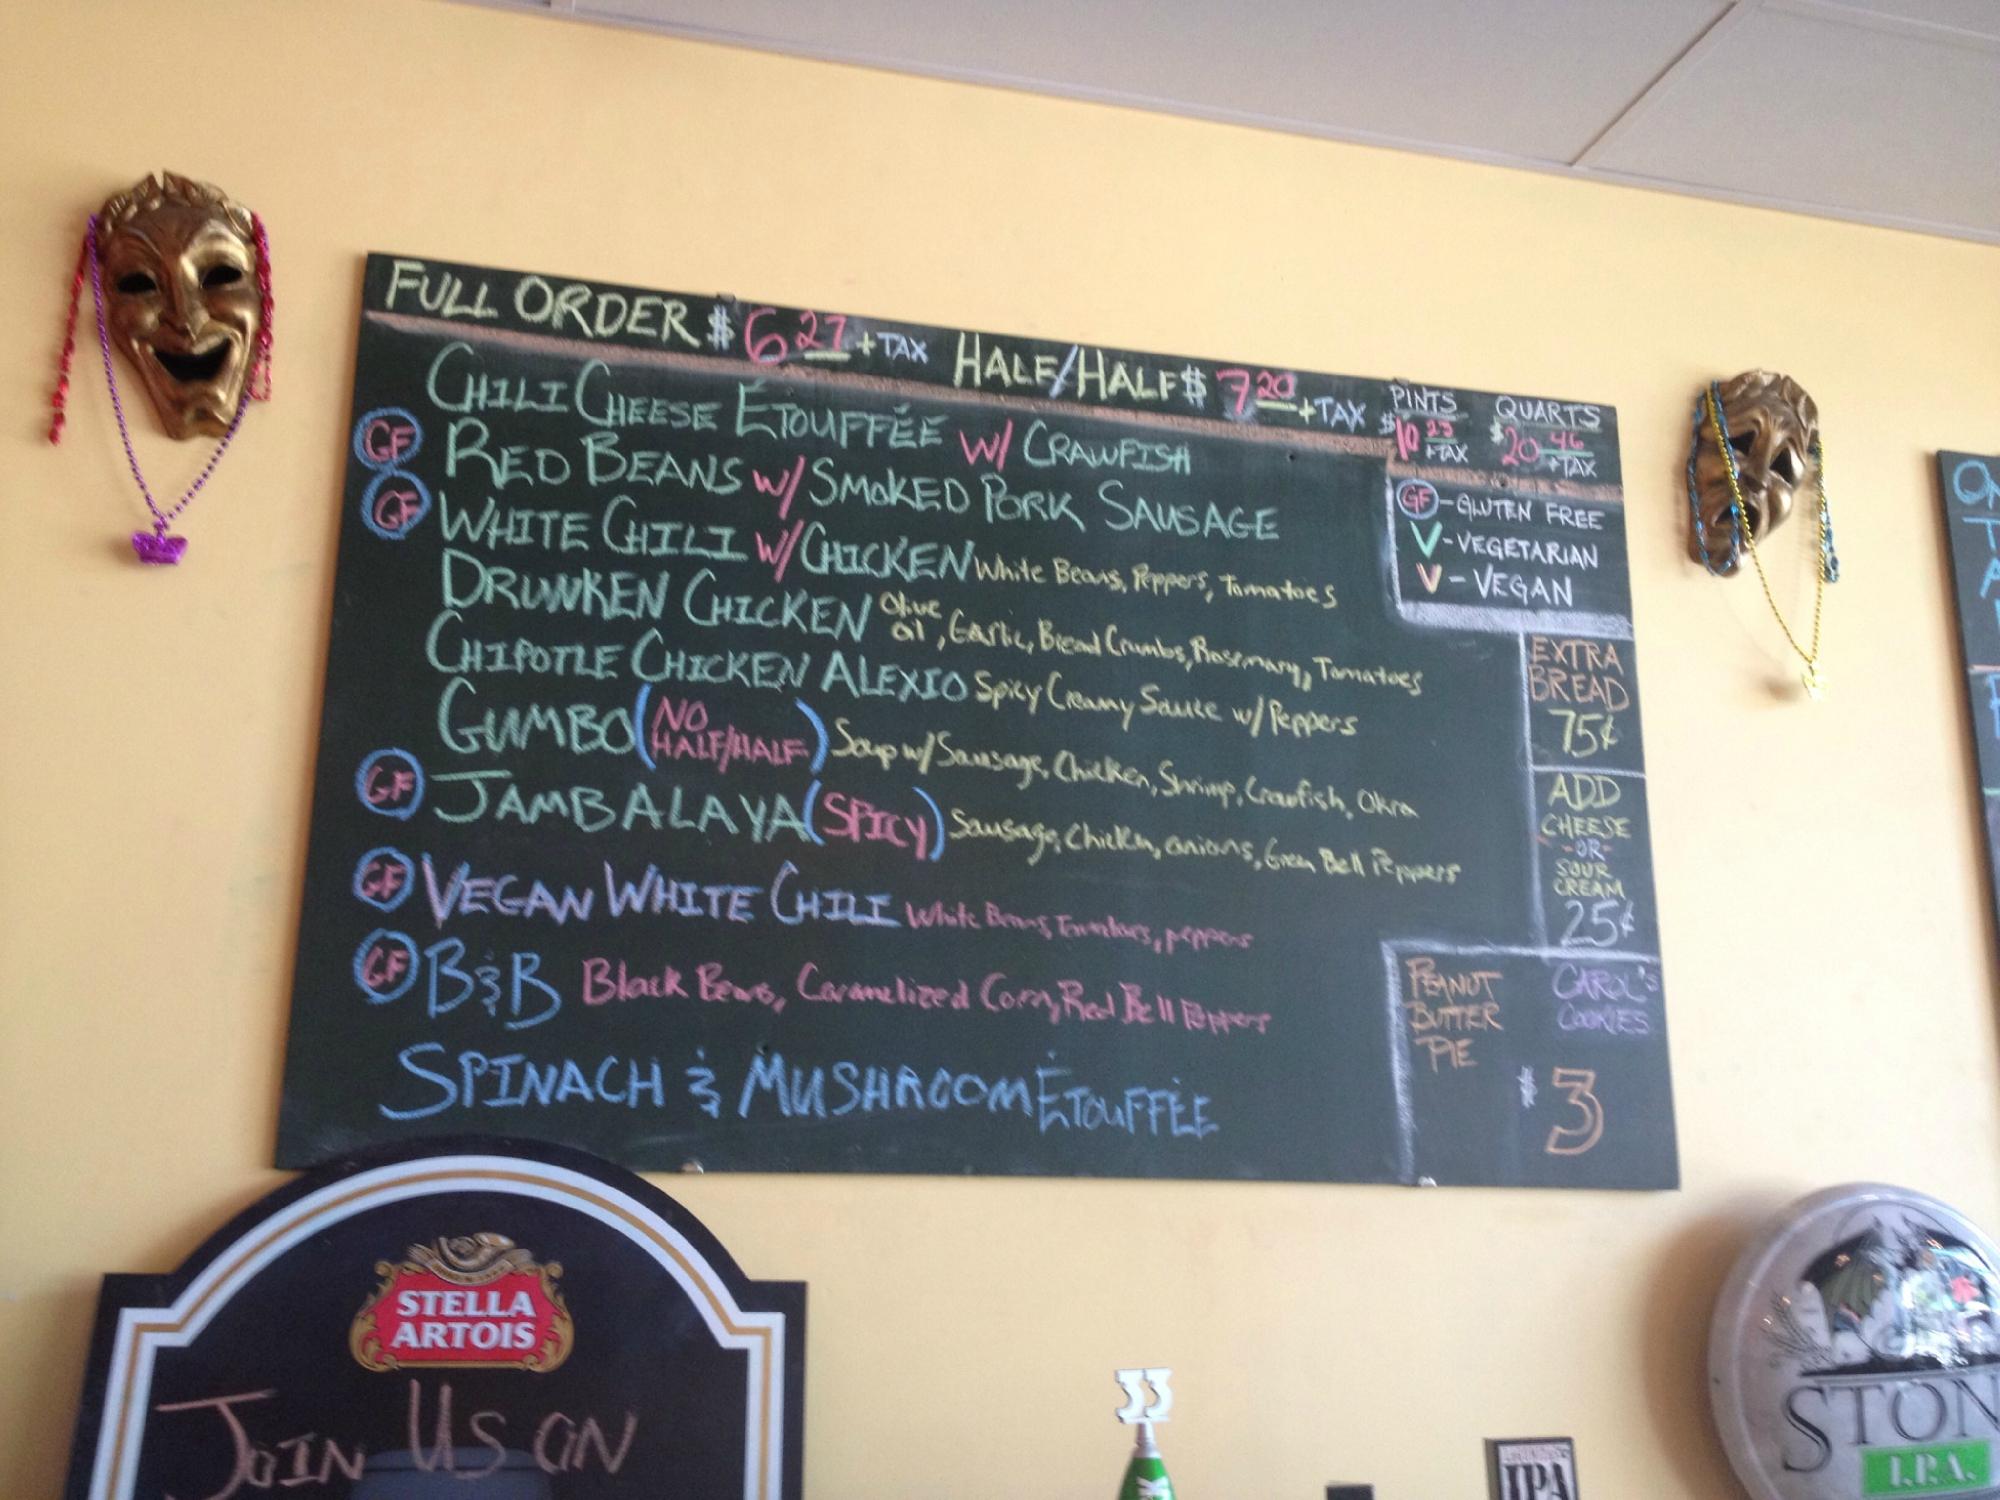 FULL ORDER $6 27 + TAX HALF/HALF $7 20 + TAX
PINTS QUARTS
$10 23 +TAX $20 46 +TAX
CHILI CHEESE ÉTOUFFÉE W/ CRAWFISH
GF RED BEANS W/ SMOKED PORK SAUSAGE
GF WHITE CHILI W/ CHICKEN White Beans, Peppers, Tomatoes
DRUNKEN CHICKEN Olive Oil, Garlic, Bread Crumbs, Rosemary, Tomatoes
CHIPOTLE CHICKEN ALEXIO Spicy Creamy Sauce w/ Peppers
GUMBO (NO HALF/HALF) Soup w/ Sausage, Chicken, Shrimp, Crawfish, Okra
GF JAMBALAYA (SPICY) Sausage, Chicken, onions, Green Bell Peppers
GF VEGAN WHITE CHILI White Beans, Tomatoes, peppers
GF B & B Black Beans, Caramelized Corn, Red Bell Peppers
SPINACH & MUSHROOM ÉTOUFFÉE
GF - GLUTEN FREE
V - VEGETARIAN
V - VEGAN
EXTRA
BREAD
75¢
ADD
CHEESE
-OR-
SOUR
CREAM
25¢
PEANUT
BUTTER
PIE
CAROL'S
COOKIES
$3
STELLA
ARTOIS
JOIN US ON
33
IPA
STON
I.P.A.